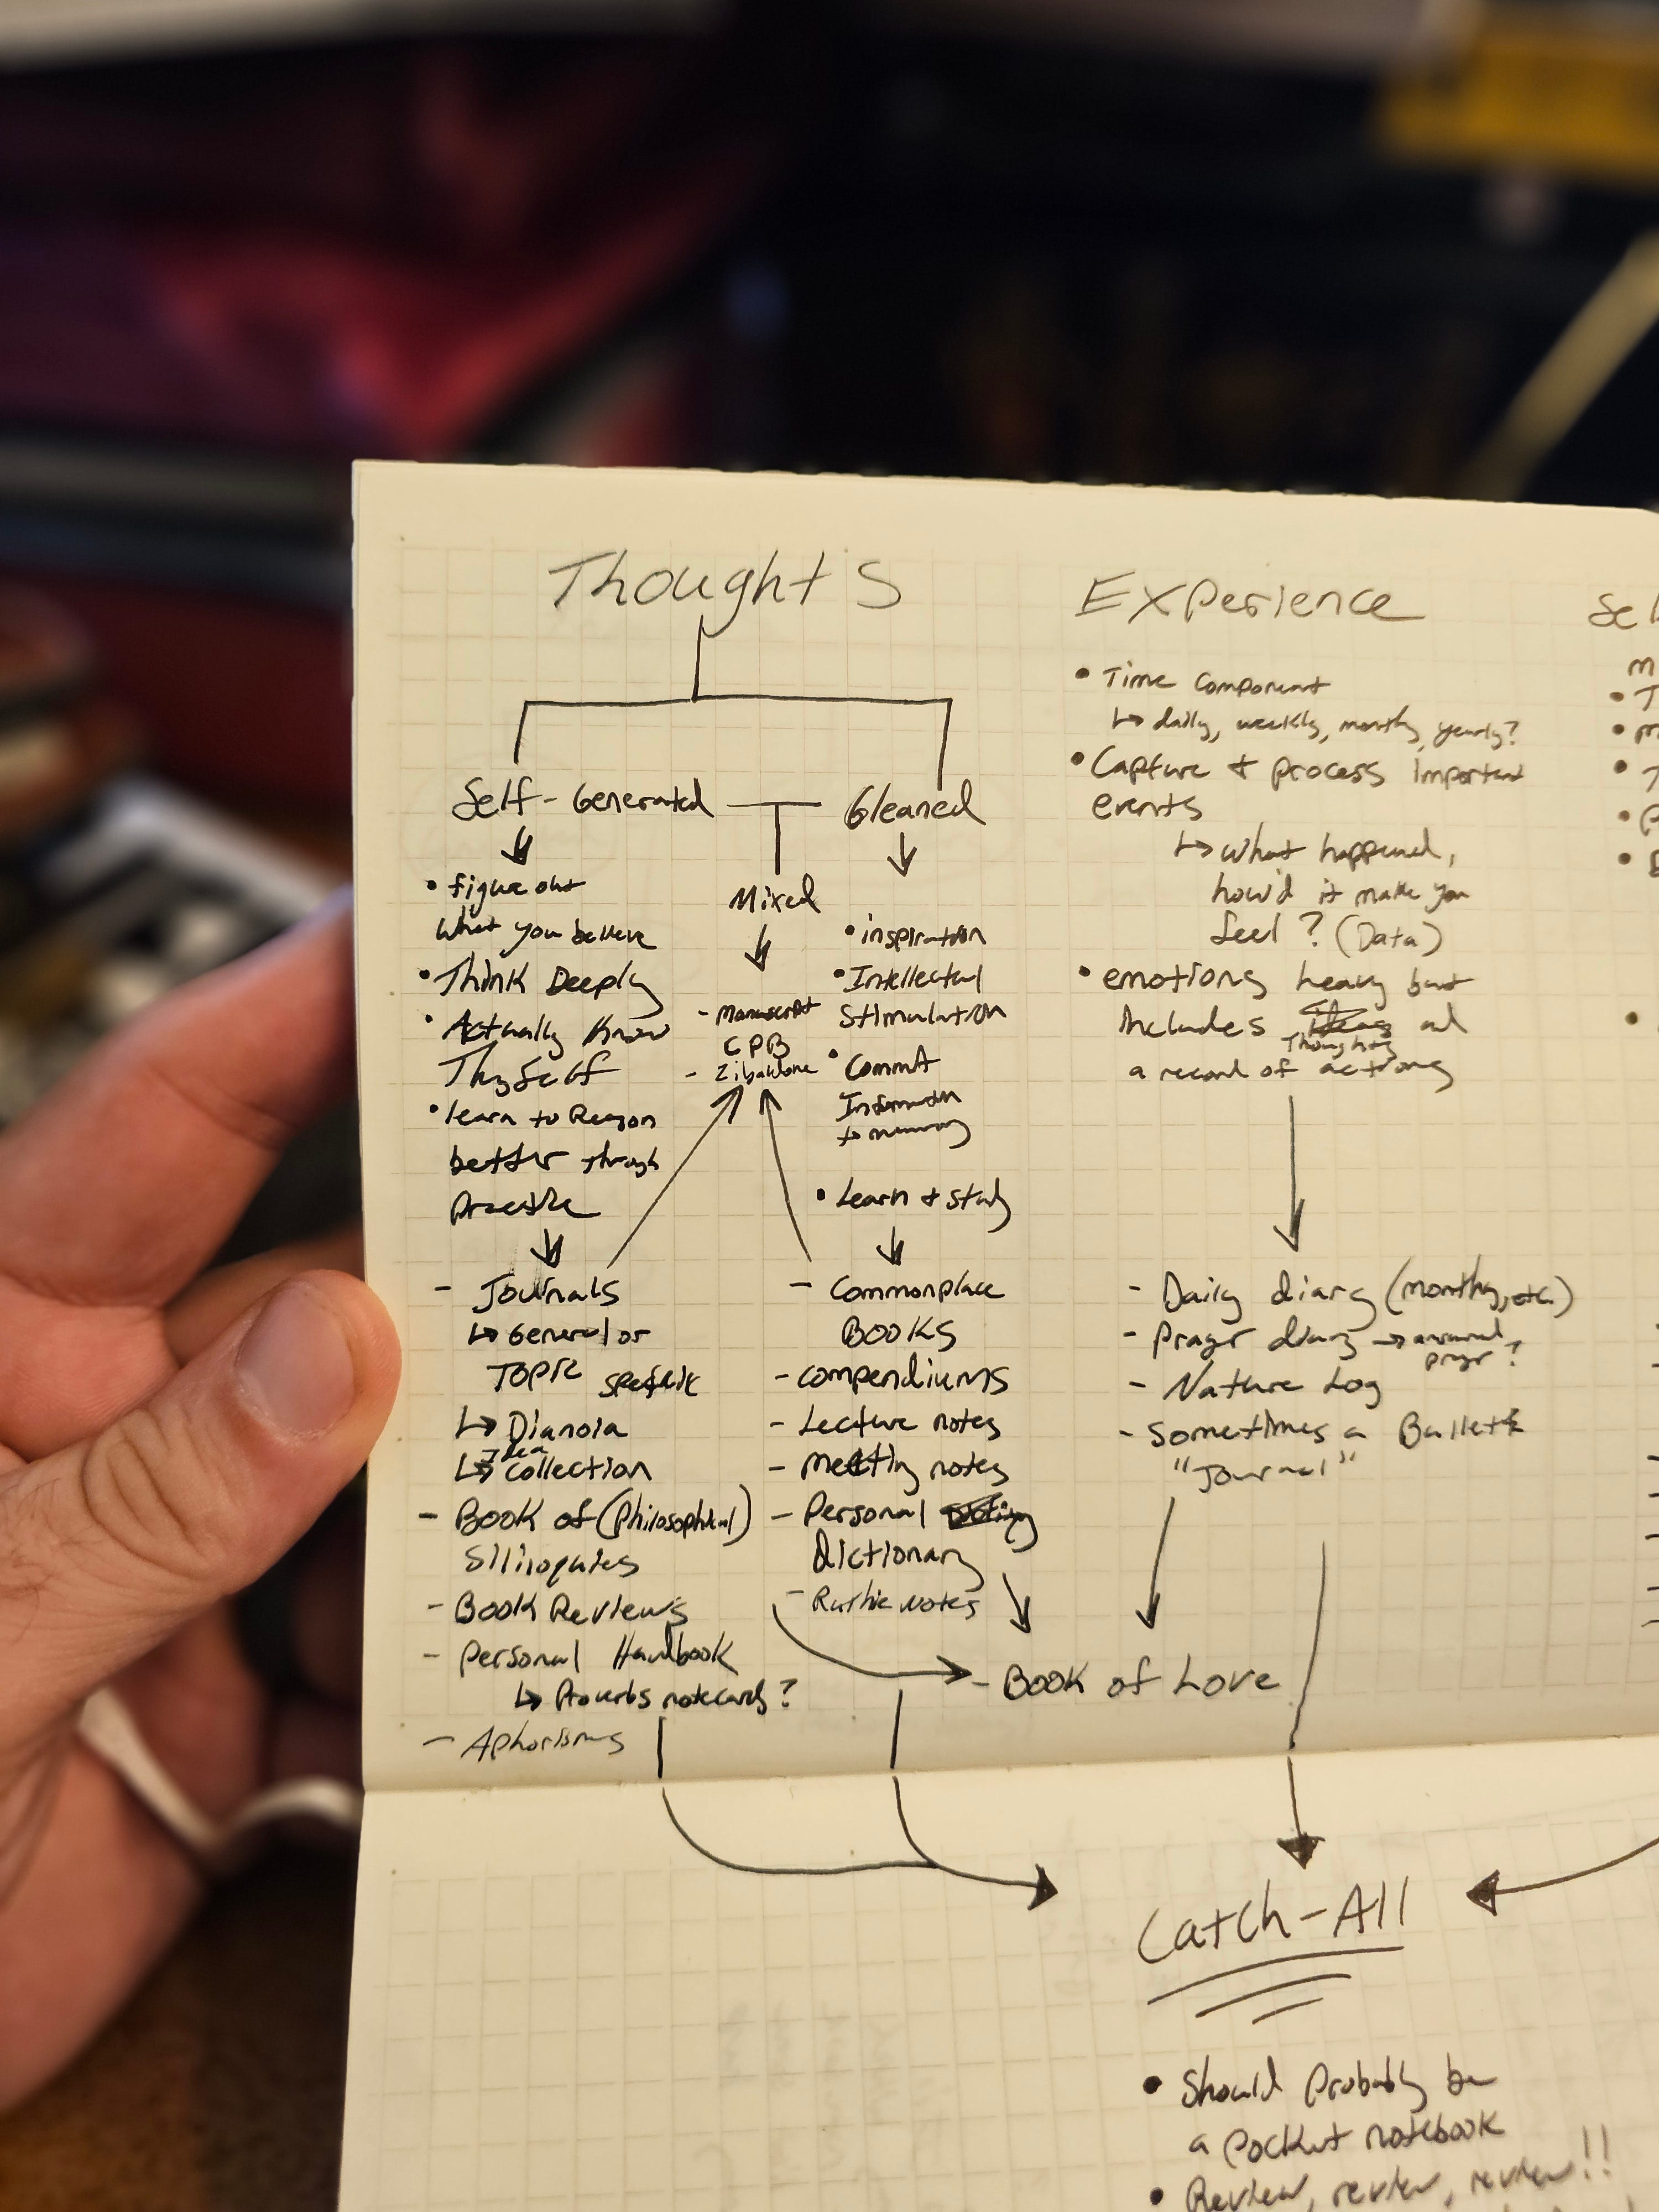 Thoughts
Self-Generated
Gleaned
Mixed
• figure out
what you believe
• Think Deeply
• Actually Know
Thy Self
• learn to Reason
better through
Practice
- Journals
↳ General or
Topic specific
↳ Dianoia
↳ Idea collection
- Book of (Philosophical)
Sililoquies
- Book Reviews
- Personal Handbook
↳ Proverbs notecards?
- Aphorisms
- Manuscript
CPB
- Zibaldone
• inspiration
• Intellectual
Stimulation
• Commit
Information
to memory
• Learn + study
- Commonplace
Books
- compendiums
- Lecture notes
- Meeting notes
- Personal
dictionary
- Ruthie notes
- Book of Love
Experience
• Time Component
↳ daily, weekly, monthly, yearly?
• Capture + process important
events
↳ what happened,
how'd it make you
feel? (Data)
• emotions heavy but
includes Thoughts and
a record of actions
- Daily diary (monthly, etc.)
- Prayer diary → answered
prayer?
- Nature Log
- Sometimes a Bullet
"Journal"
Catch-All
• Should Probably be
a pocket notebook
• Review, review, review!!